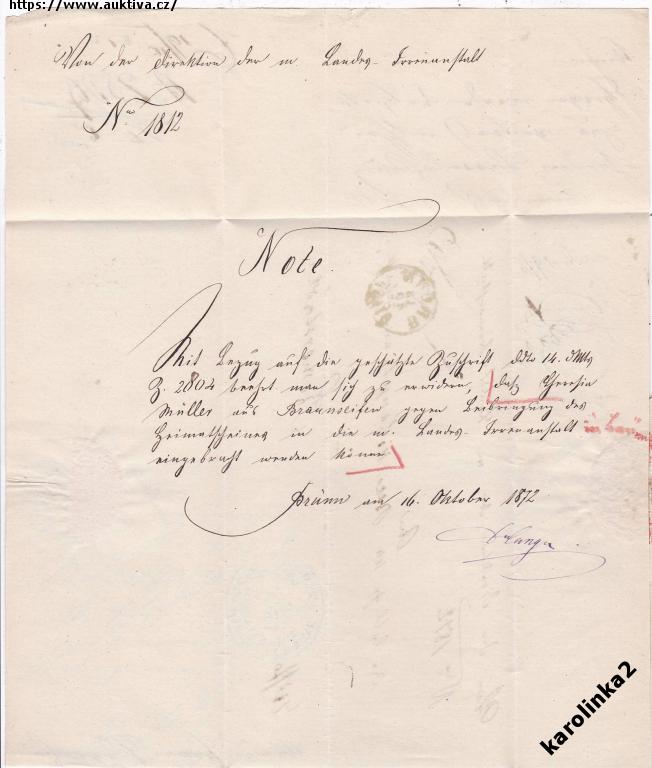 https://www.auktiva.cz/
Von der Direktion der m. Landes-Irrenanstalt
No 1812
Note.
Mit Bezug auf die geschätzte Zuschrift ddto 14. d Mts
Z. 2804 beehrt man sich zu erwidern, daß Theresia
Müller aus Braunseifen gegen Beibringung des
Heimatscheines in die m. Landes-Irrenanstalt in Brünn
eingebracht werden könne
Brünn am 16. Oktober 1872
karolinka2